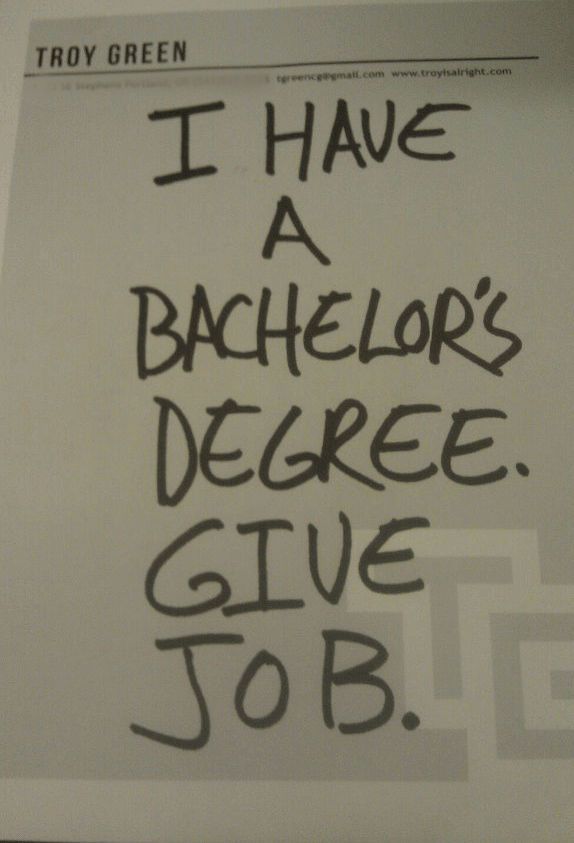 TROY GREEN
tgreencg@gmail.com www.troyisalright.com
I HAVE
A
BACHELOR'S
DEGREE.
GIVE
JOB.
TG